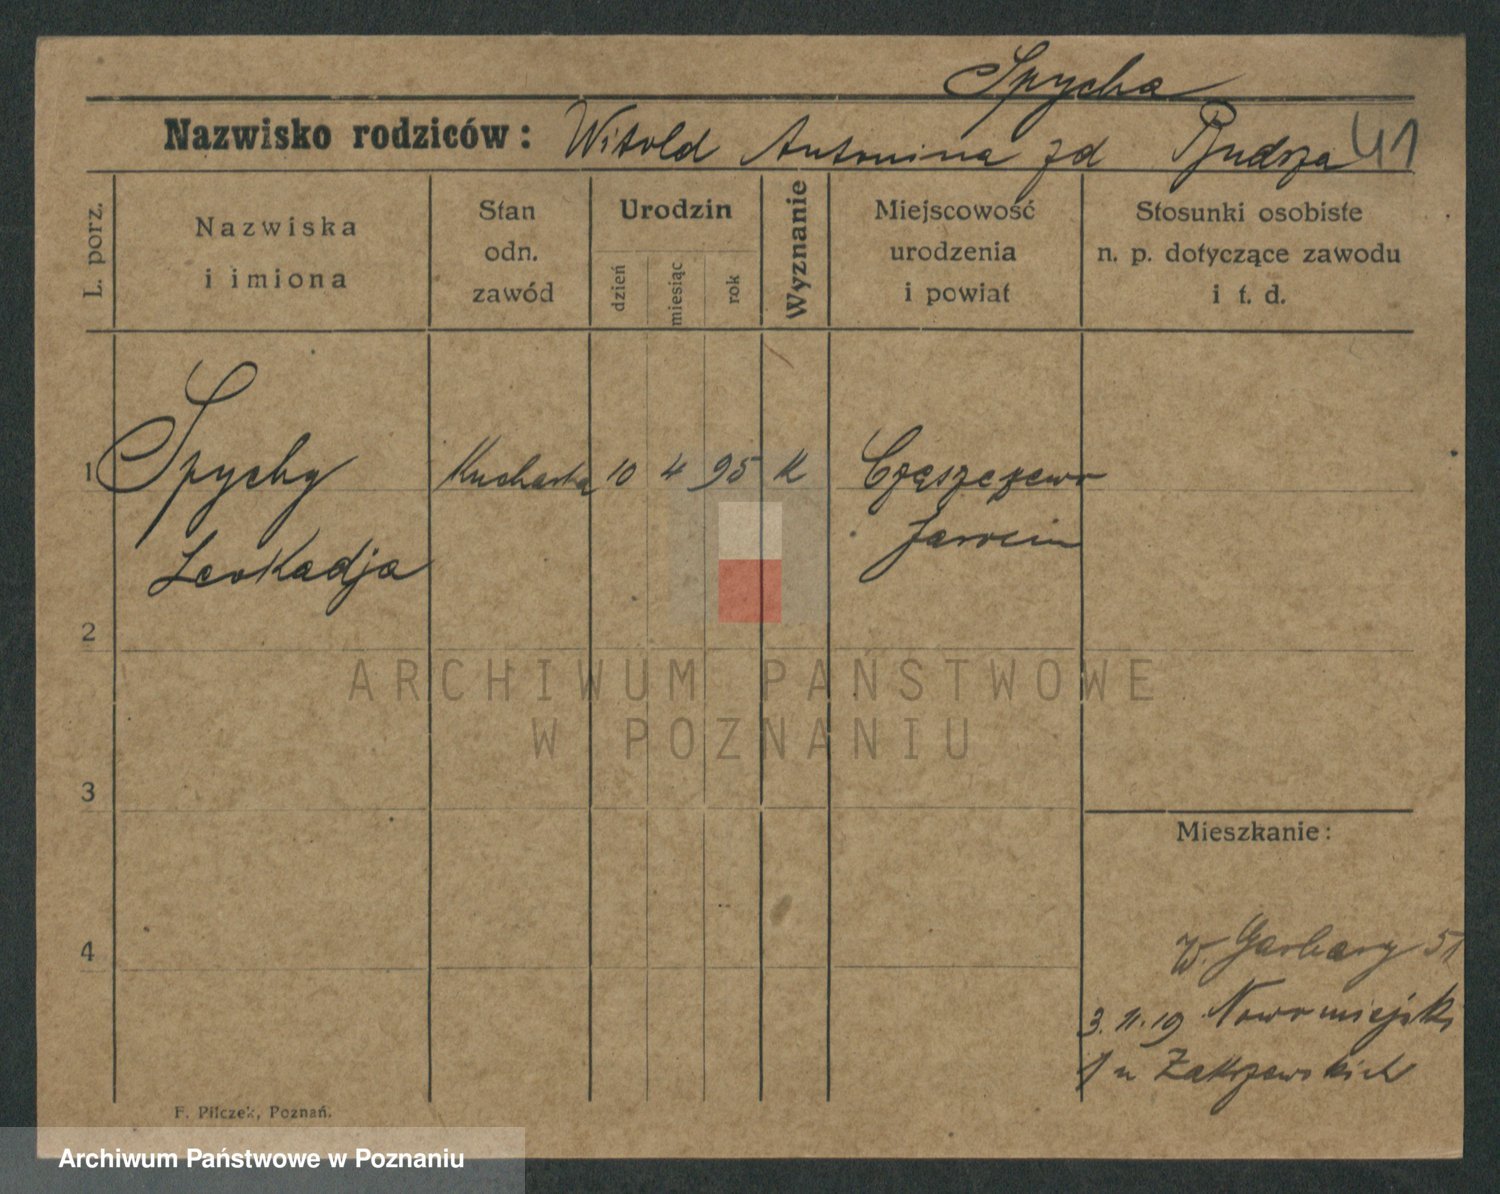 Spycha
Nazwisko rodziców: Witold Antonina zd 41
L. porz.
Nazwiska
i imiona
Stan
odn.
zawód
Urodzin
dzień
miesiąc
rok
Wyznanie
Miejscowość
urodzenia
i powiat
Stosunki osobiste
n. p. dotyczące zawodu
i t. d.
1 Spychy Kucharka 10 4 95 K Częszczewo
Jarocin
Leokadja
2
ARCHIWUM PAŃSTWOWE
W POZNANIU
3
Mieszkanie:
4
W. Garbary 51
3. 11. 19 Nowomiejski
1 u Zakrzewskich
F. Pilczek, Poznań.
Archiwum Państwowe w Poznaniu